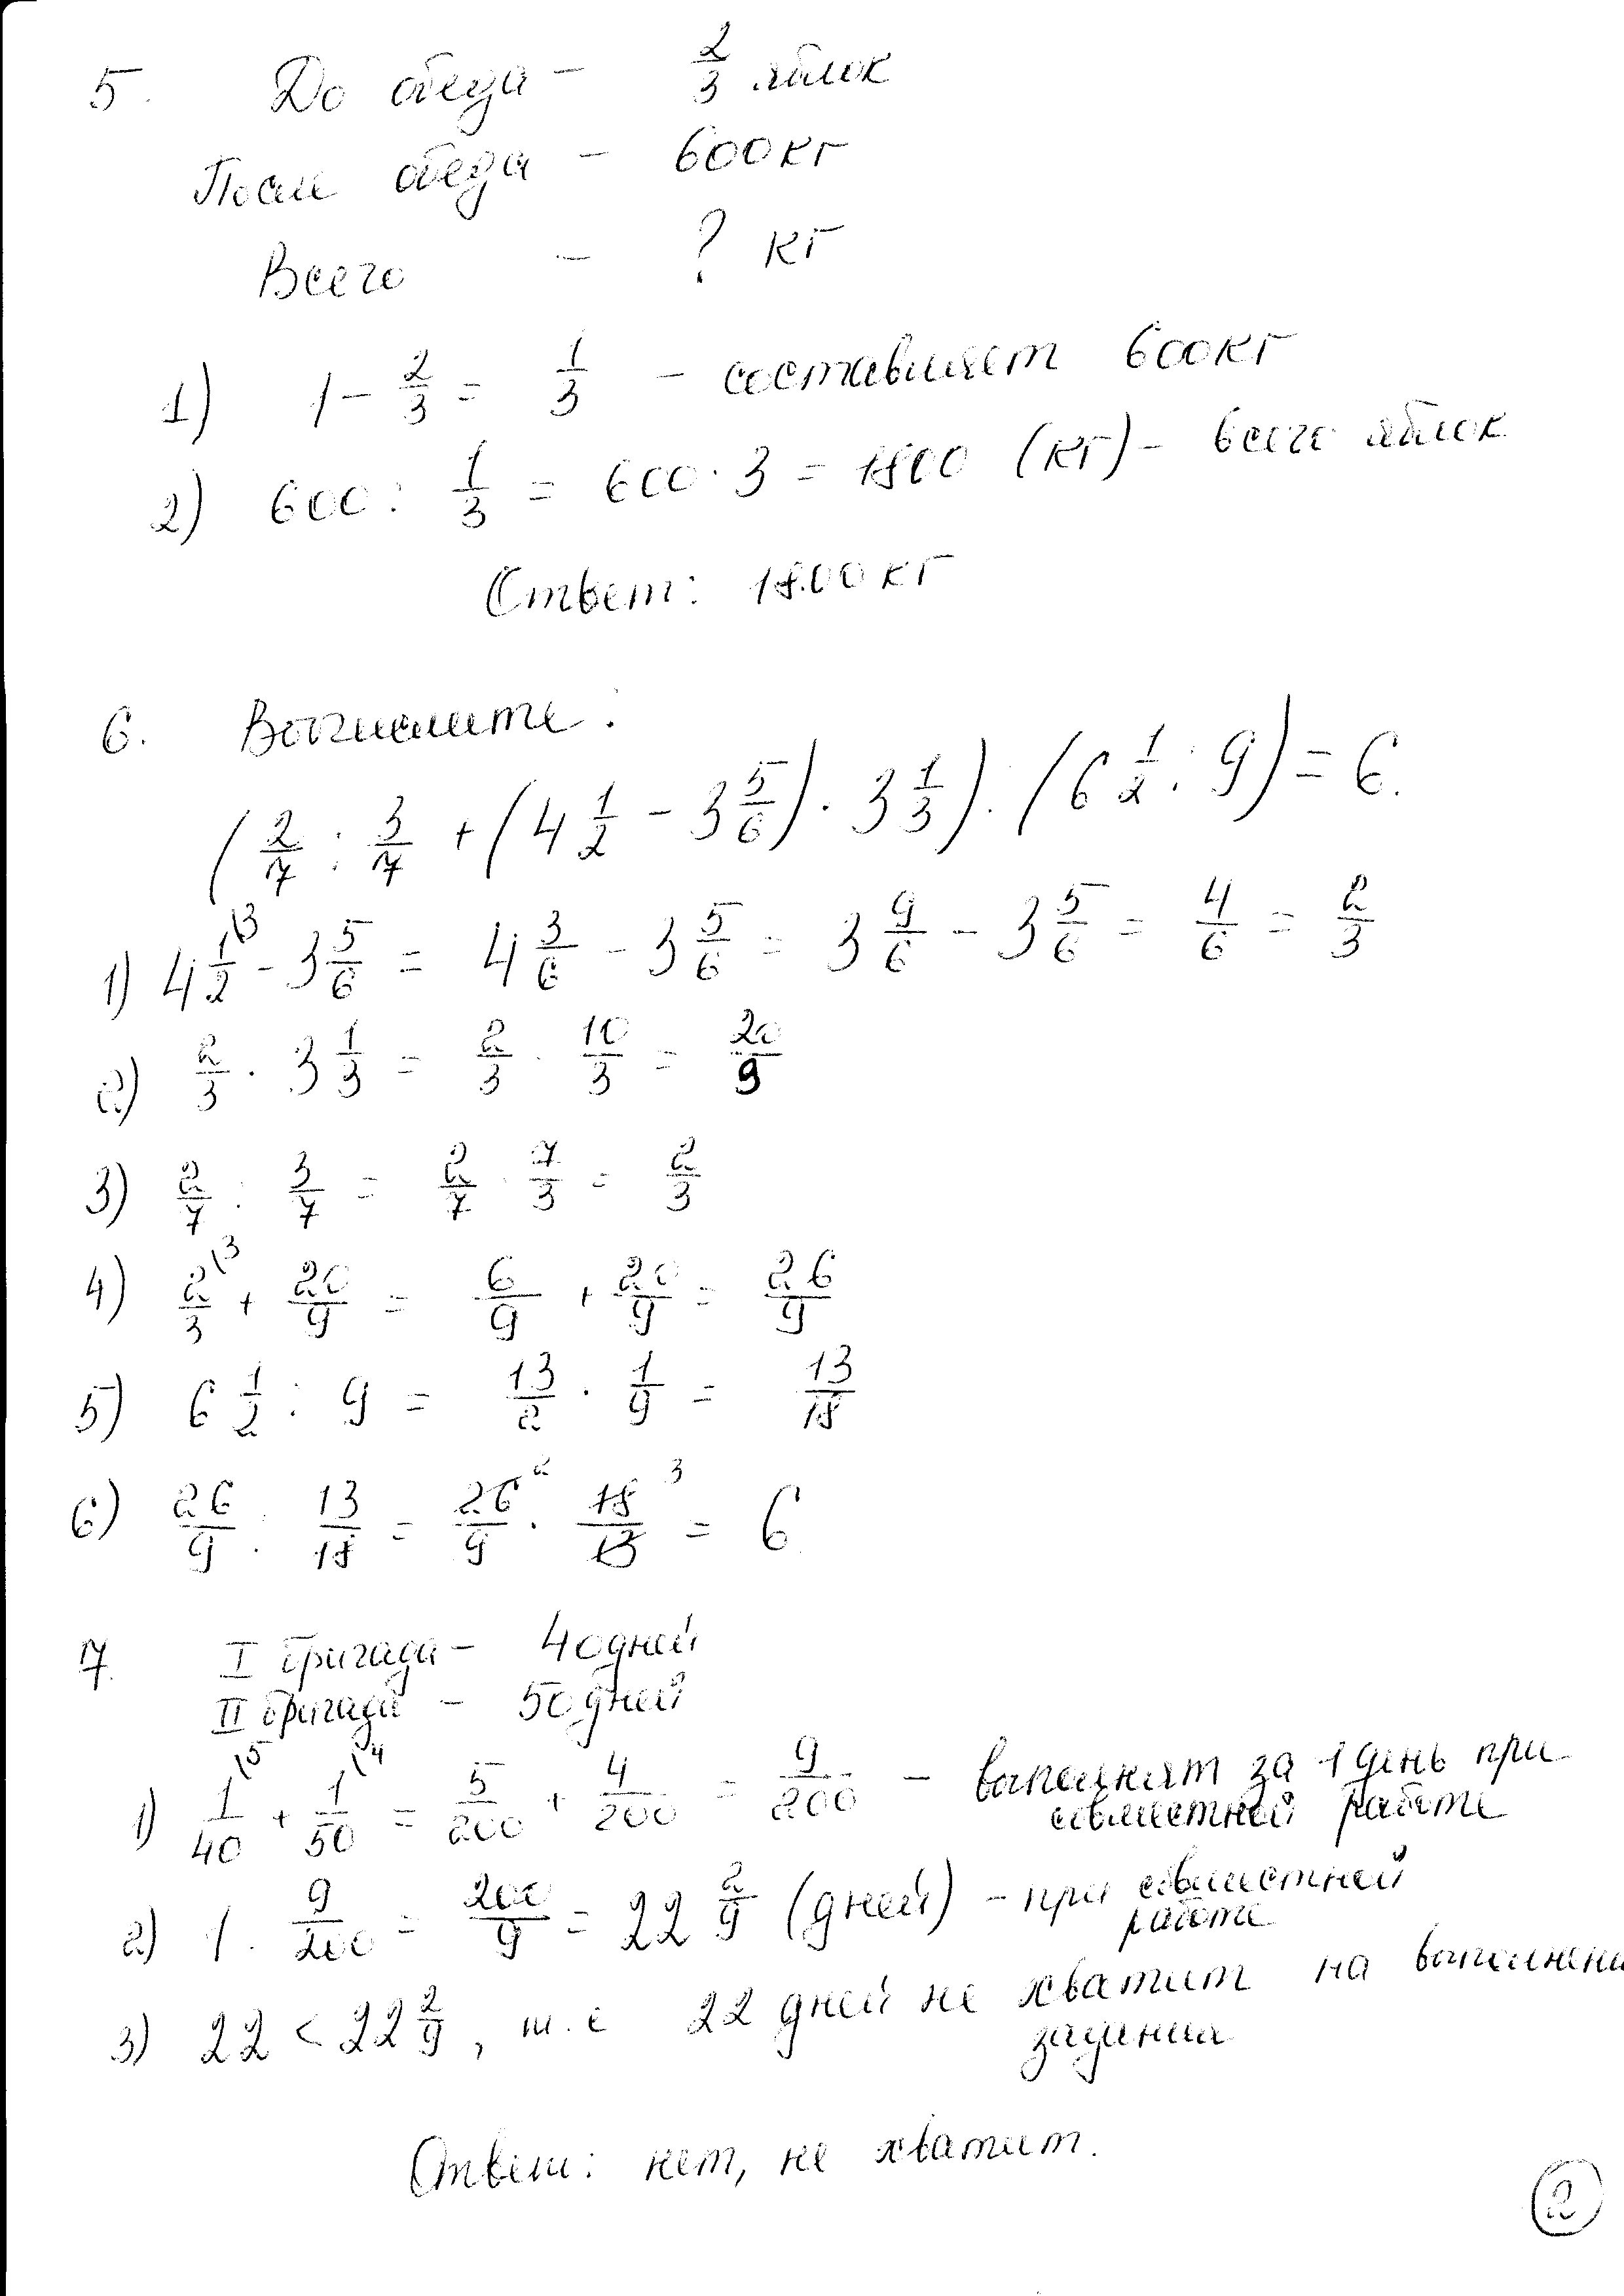 5. До обеда – 2/3 яблок
После обеда – 600 кг
Всего – ? кг
1) 1 – 2/3 = 1/3 – составляет 600 кг
2) 600 : 1/3 = 600 · 3 = 1800 (кг) – всего яблок
Ответ: 1800 кг
6. Вычислите:
(2/7 : 3/7 + (4 1/2 – 3 5/6) · 3 1/3) : (6 1/2 : 9) = 6.
1) 4 1/2 \3 – 3 5/6 = 4 3/6 – 3 5/6 = 3 9/6 – 3 5/6 = 4/6 = 2/3
2) 2/3 · 3 1/3 = 2/3 · 10/3 = 20/9
3) 2/7 : 3/7 = 2/7 · 7/3 = 2/3
4) 2/3 \3 + 20/9 = 6/9 + 20/9 = 26/9
5) 6 1/2 : 9 = 13/2 · 1/9 = 13/18
6) 26/9 : 13/18 = 26/9 2 · 18/13 3 = 6
7. I бригада – 40 дней
II бригада – 50 дней
1) 1/40 \5 + 1/50 \4 = 5/200 + 4/200 = 9/200 – выполнят за 1 день при
совместной работе
2) 1 : 9/200 = 200/9 = 22 2/9 (дней) – при совместной
работе
3) 22 < 22 2/9, т. е 22 дней не хватит на выполнени
задания
Ответ: нет, не хватит.
2